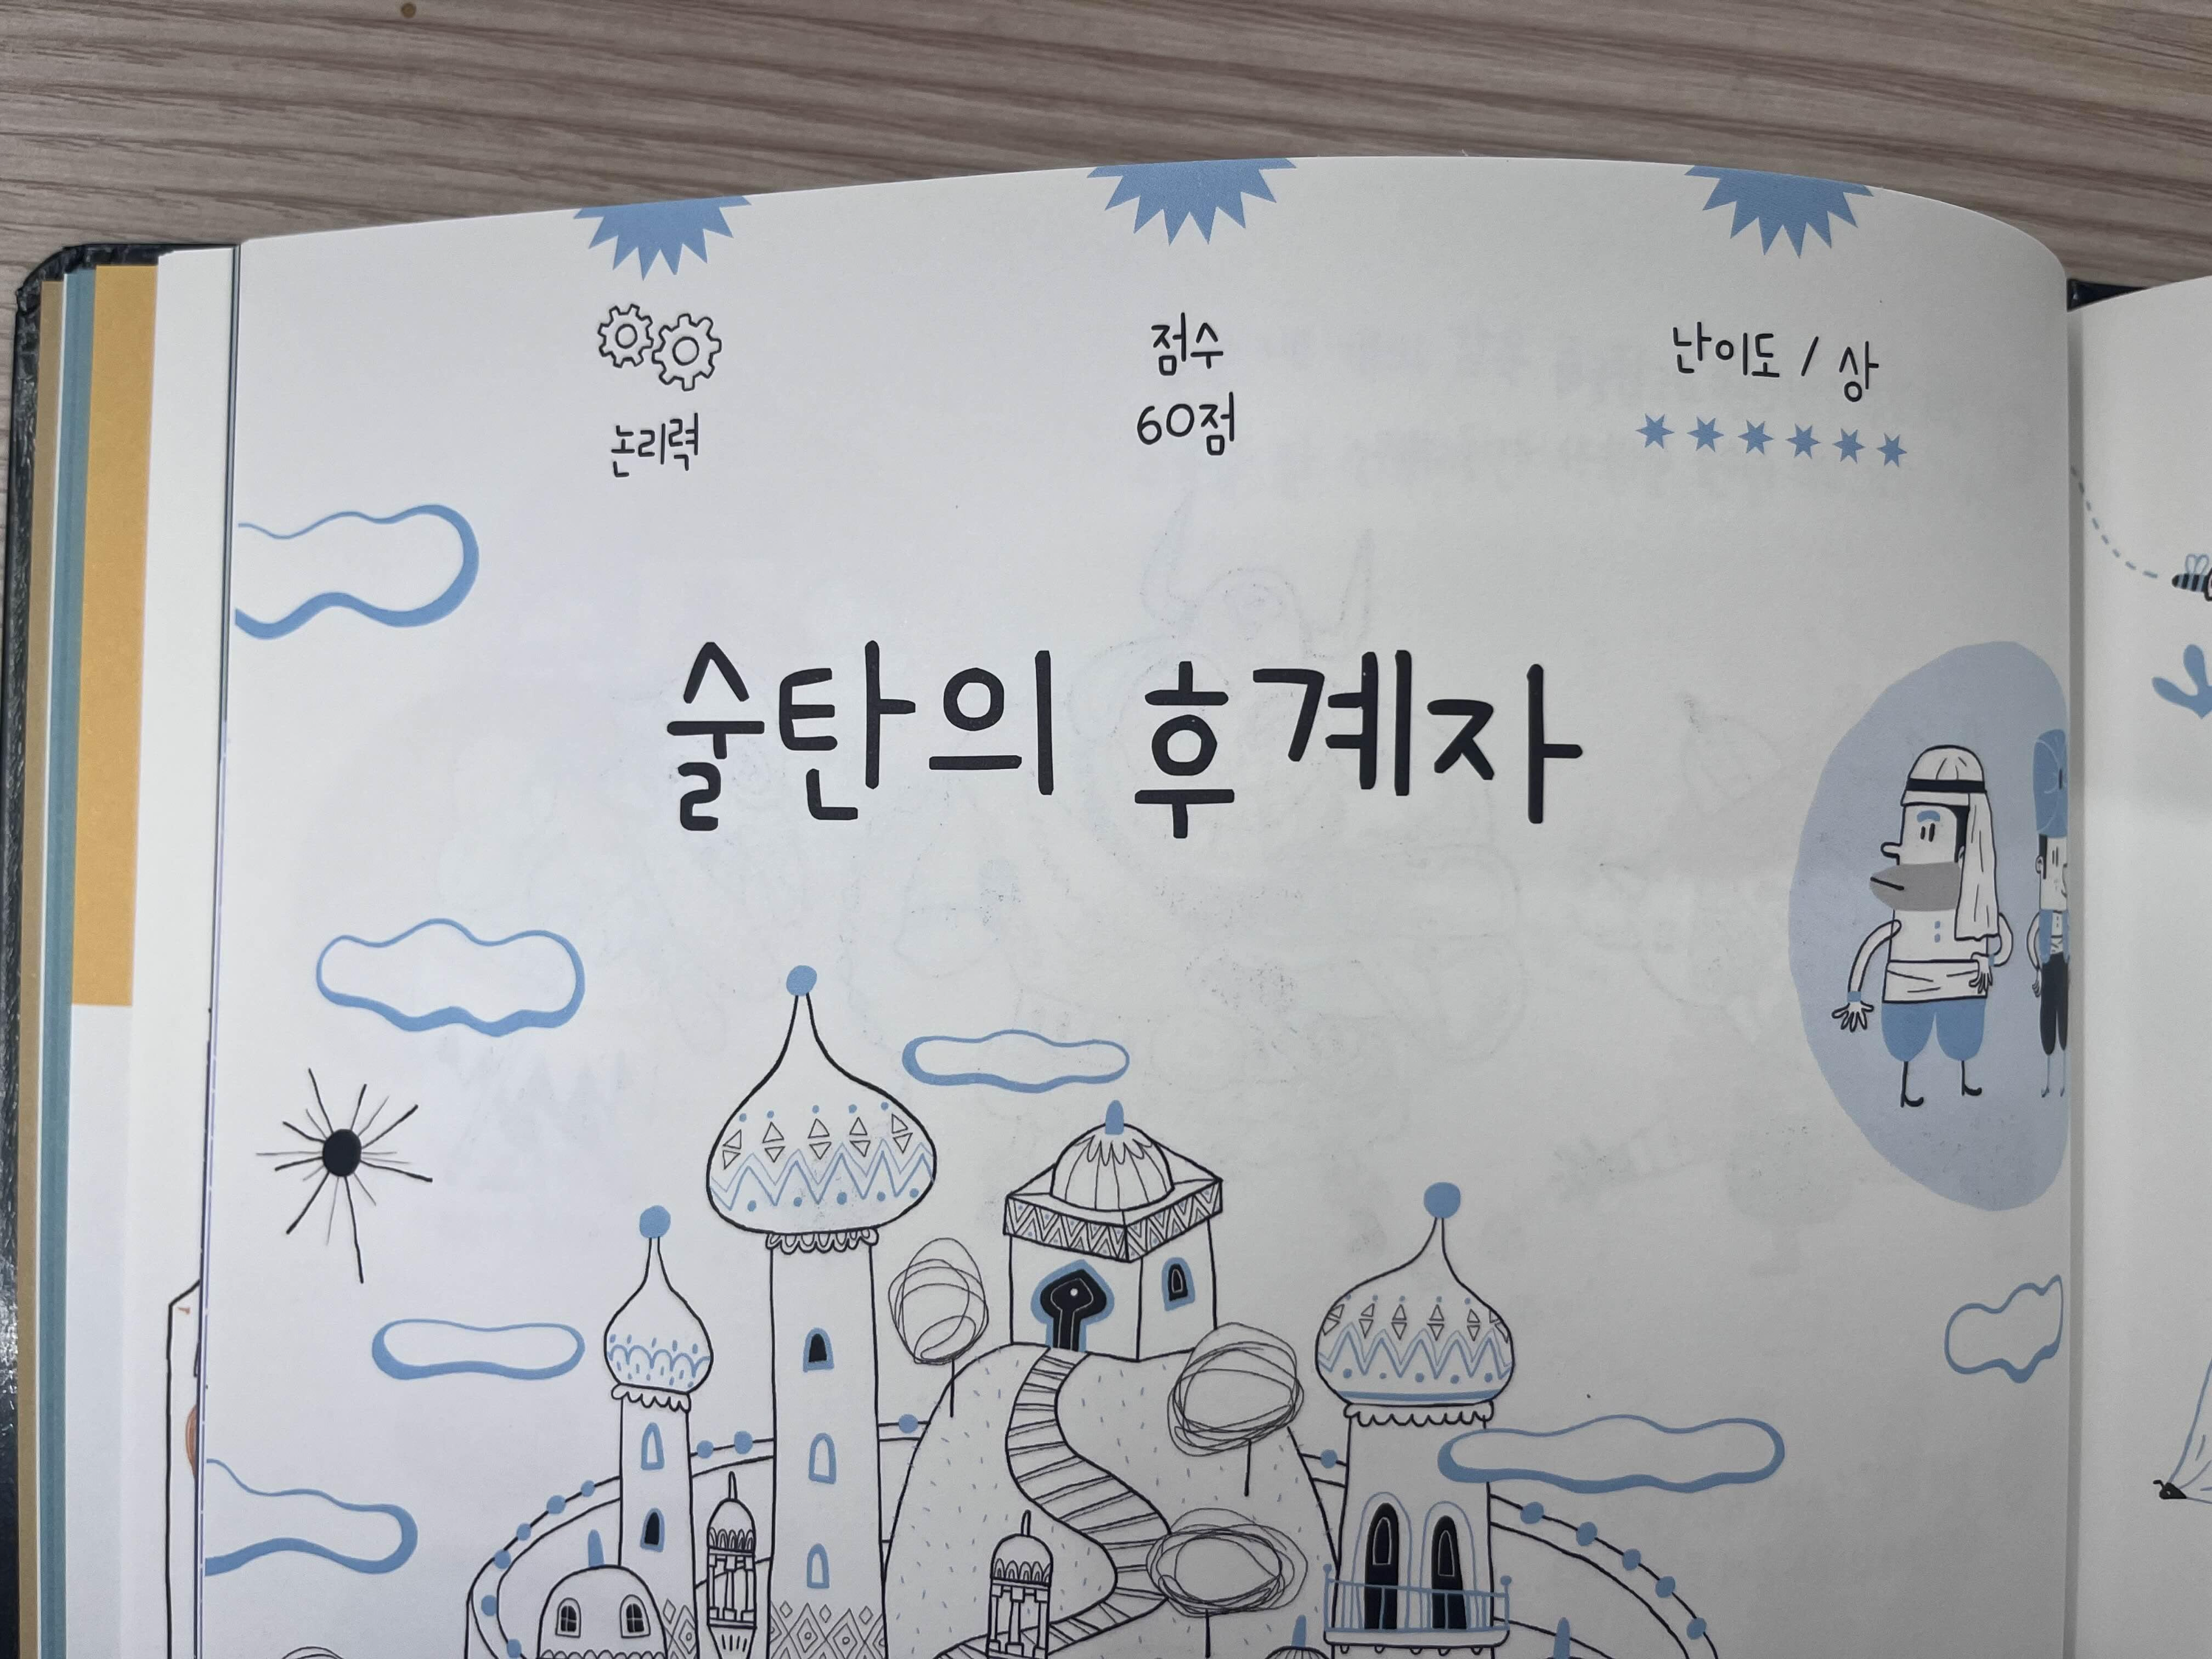 논리력
점수
60점
난이도 / 상
술탄의 후계자